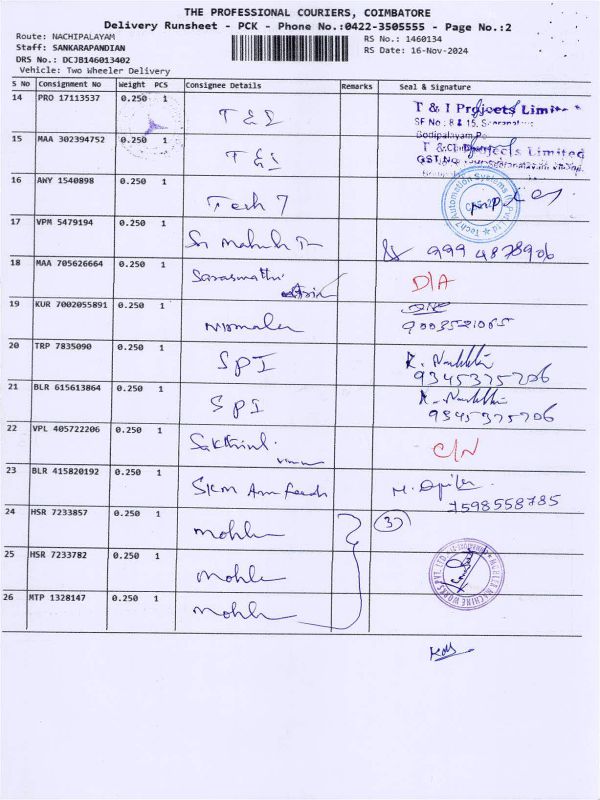 THE PROFESSIONAL COURIERS, COIMBATORE
Delivery Runsheet - PCK - Phone No.:0422-3505555 - Page No.:2
Route: NACHIPALAYAM
Staff: SANKARAPANDIAN
DRS No.: DCJB146013402
Vehicle: Two Wheeler Delivery
RS No.: 1460134
RS Date: 16-Nov-2024
S No Consignment No Weight PCS Consignee Details Remarks Seal & Signature
14 PRO 17113537 0.250 1 T & I T & I Projects Limited
SF No : 8 & 15,
Bodipalayam
15 MAA 302394752 0.250 1 T & I T & I Projects Limited
GST No
16 AWY 1540898 0.250 1 Tech 7 Tech7 Automation Systems Pvt Ltd
17 VPM 5479194 0.250 1 Sri
18 MAA 705626664 0.250 1 Saraswathi D/A
19 KUR 7002055891 0.250 1 Nirmala 9003521065
20 TRP 7835090 0.250 1 SPI
9345375706
21 BLR 615613864 0.250 1 SPI
9345375706
22 VPL 405722206 0.250 1 Sakthivel C/N
23 BLR 415820192 0.250 1 SKM Feeds
7598558785
24 HSR 7233857 0.250 1 Mohler 3
25 HSR 7233782 0.250 1 Mohler MOHLER MACHINE WORKS PVT. LTD.
26 MTP 1328147 0.250 1 Mohler